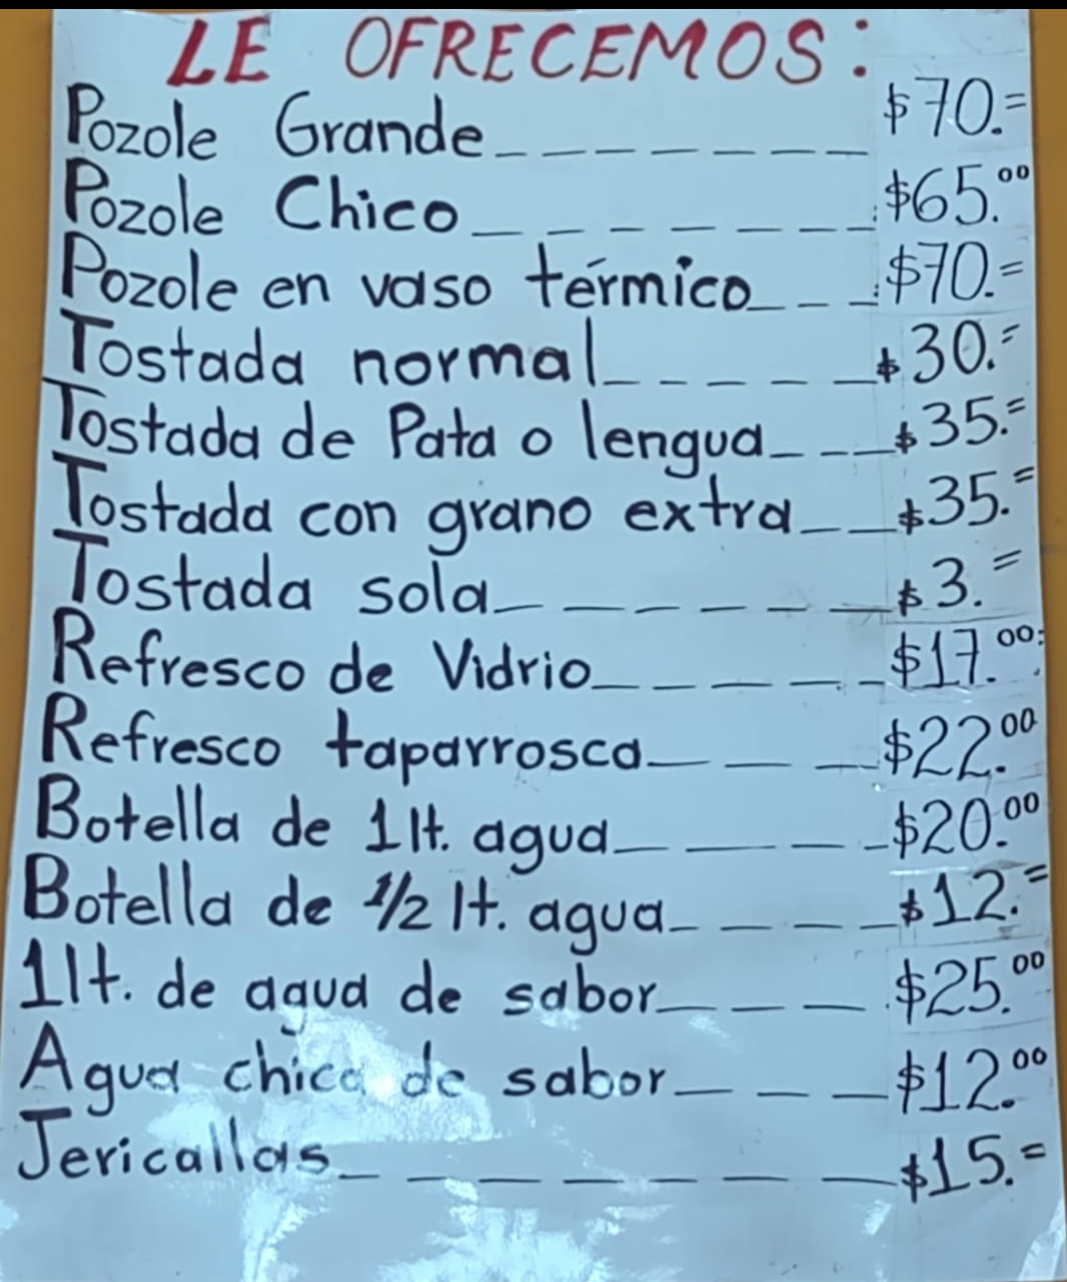 LE OFRECEMOS:
Pozole Grande_ _ _ _ _ _ _ $70.=
Pozole Chico_ _ _ _ _ _ _ _ $65.00
Pozole en vaso térmico_ _ _ $70.=
Tostada normal_ _ _ _ _ _ $30.=
Tostada de Pata o lengua_ _ _ $35.=
Tostada con grano extra_ _ $35.=
Tostada sola_ _ _ _ _ _ _ $3.=
Refresco de Vidrio_ _ _ _ _ _ $17.00
Refresco taparrosca_ _ _ $22.00
Botella de 1 lt. agua_ _ _ _ $20.00
Botella de 1/2 lt. agua_ _ _ _ $12.=
1 lt. de agua de sabor_ _ _ $25.00
Agua chica de sabor_ _ _ $12.00
Jericallas_ _ _ _ _ _ _ _ $15.=